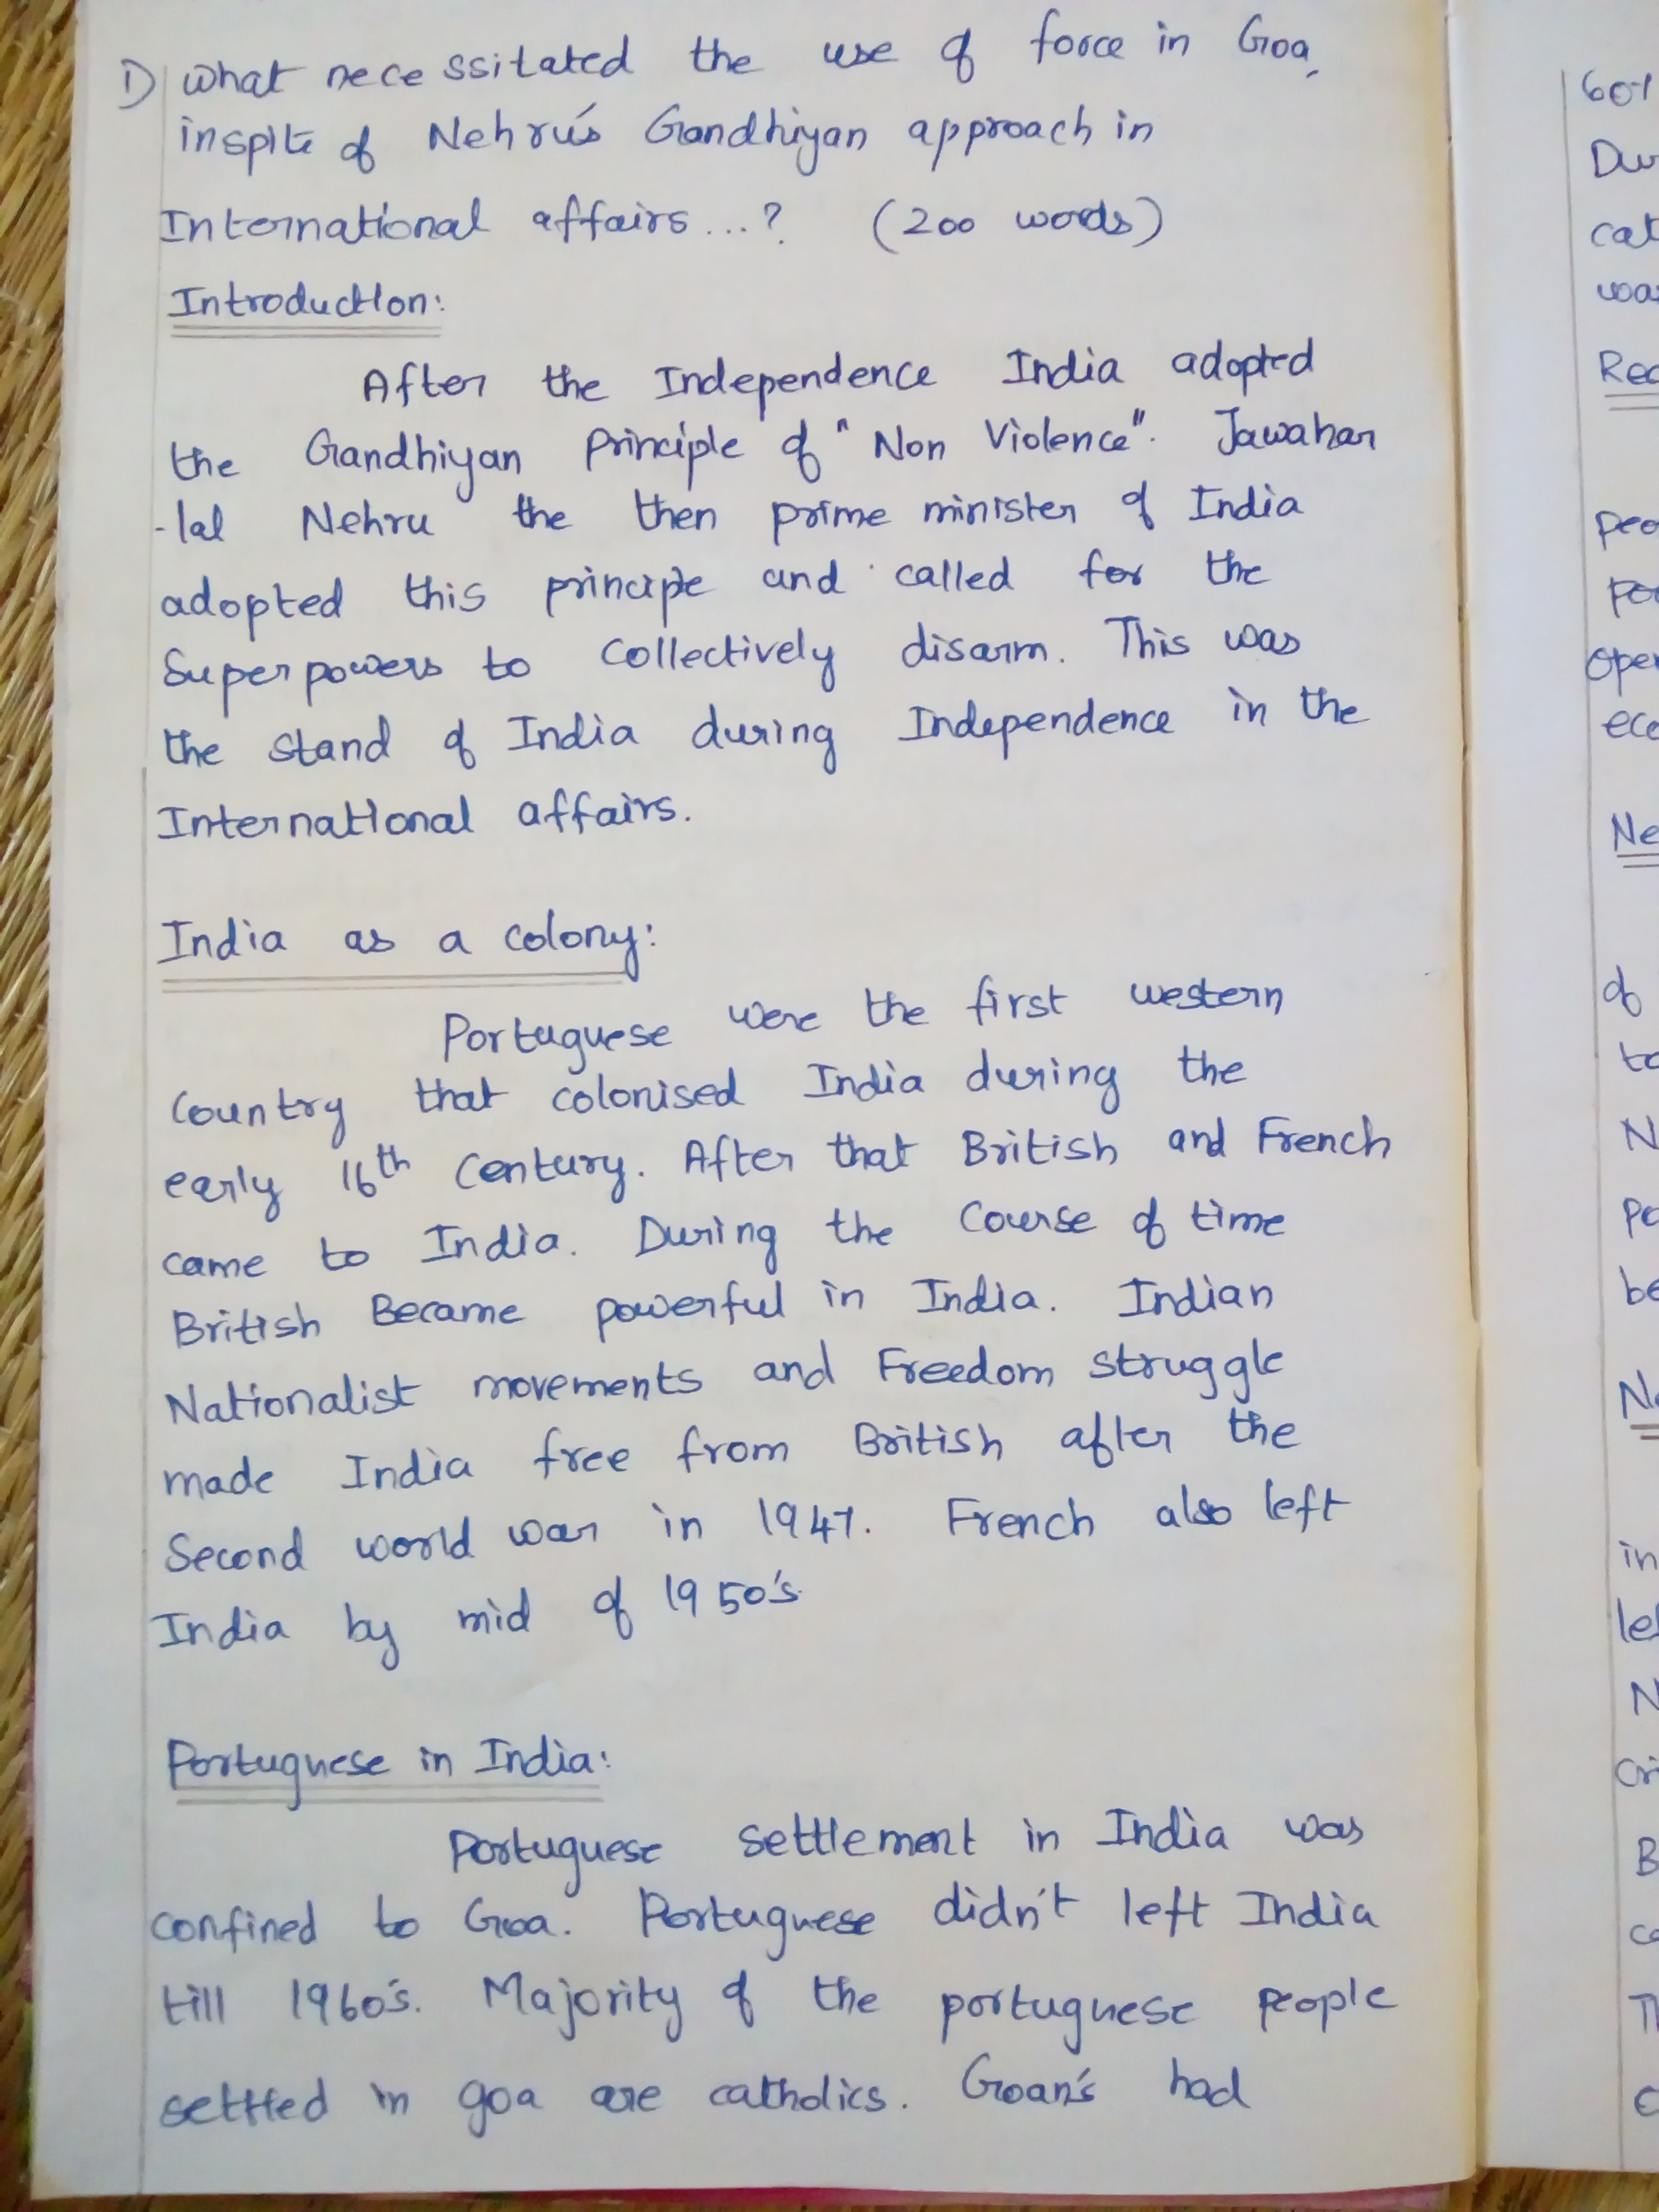 1) what necessitated the use of force in Goa,
inspite of Nehru's Gandhiyan approach in
International affairs...? (200 words)
Introduction:
After the Independence India adopted
the Gandhiyan Principle of "Non Violence". Jawahar
-lal Nehru the then prime minister of India
adopted this principe and called for the
Superpowers to collectively disarm. This was
the stand of India during Independence in the
International affairs.
India as a colony:
Portuguese were the first western
country that colonised India during the
early 16th century. After that British and French
came to India. During the course of time
British Became powerful in India. Indian
Nationalist movements and Freedom struggle
made India free from British after the
Second world war in 1947. French also left
India by mid of 1950's.
Portuguese in India:
Portuguese settlement in India was
confined to Goa. Portuguese didn't left India
till 1960's. Majority of the portuguese people
settled in goa are catholics. Goan's had
60%
cat
Rec
peo
ope
Ne
of
to
N
po
be
in
le
N
B